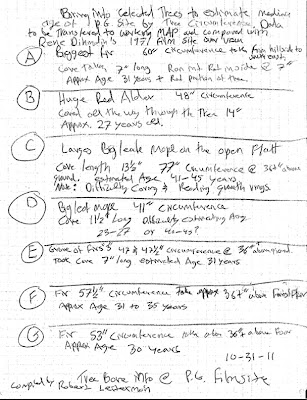 Boring into Selected Trees to estimate medium
age of P.G. Site by Tree Circumference. Data
to be transfered to working MAP and compared with
Rene Dahinden's 1971 film site survey
A Biggest Fir circumference taken from hillside to south east.
Core Taken 7" long Ran out Rot inside @ 7"
Approx Age 31 years + Rot portion of Tree.
B Huge Red Alder 48" circumference
Cored all the way through the Tree 14"
Approx. 27 years old.
C Larges Bigleafe Maple on the open Flatt
Core length 13½" 77" circumference @ 36" above
ground. estimated Age 41-45 years
Note: Difficulty Coring & Reading growth rings.
D Bigleaf maple 41" circumference
Core 11½" long difficulty estimating Age
23-27 or 41-43?
E Grove of Firs's 47 & 47½" circumference @ 36" above ground
Took Core 7" long estimated Age 31 years
F Fir 57½" circumference taken approx 36" above Forest Floor
Approx Age 31 to 35 years
G Fir 53" circumference taken also 36" above Floor
Approx Age 30 years
10-31-11
Tree Bore info @ P.G. Filmsite
Compiled by Robert Leiterman